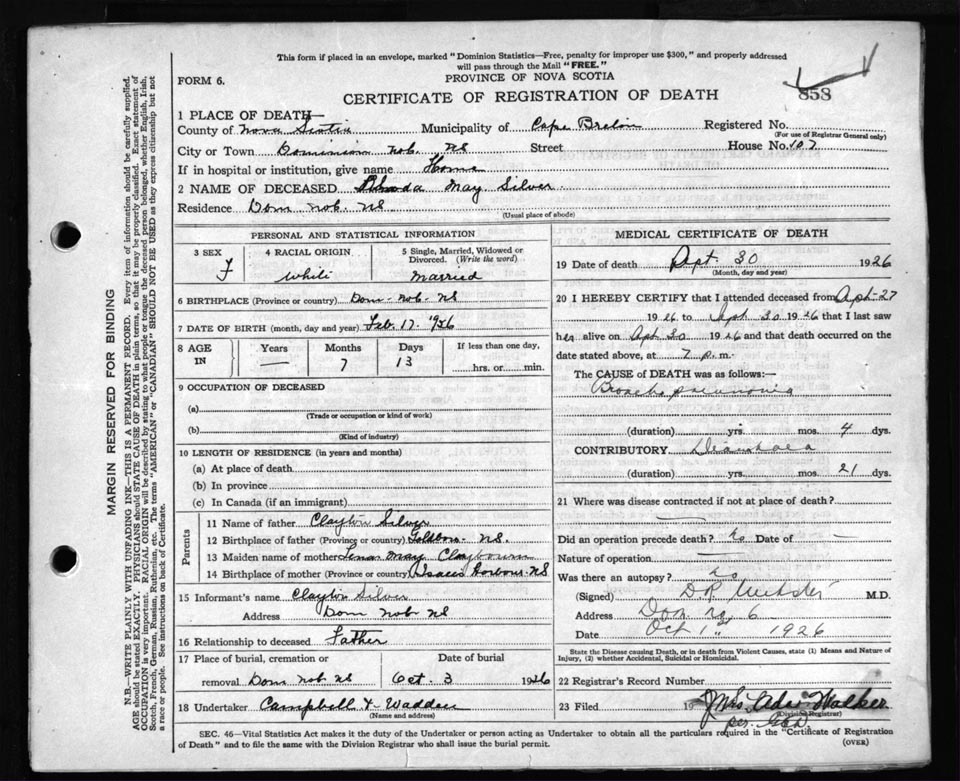 This form if placed in an envelope, marked "Dominion Statistics—Free, penalty for improper use $300," and properly addressed
will pass through the Mail "FREE."
FORM 6.
PROVINCE OF NOVA SCOTIA
858
CERTIFICATE OF REGISTRATION OF DEATH
1 PLACE OF DEATH—
County of Nova Scotia Municipality of Cape Breton Registered No.
(For use of Registrar General only)
City or Town Dominion No6. NS Street House No. 107
If in hospital or institution, give name Home
2 NAME OF DECEASED Rhoda May Silver
Residence Dom No6. NS
(Usual place of abode)
PERSONAL AND STATISTICAL INFORMATION
3 SEX F
4 RACIAL ORIGIN White
5 Single, Married, Widowed or Divorced. (Write the word) Married
6 BIRTHPLACE (Province or country) Dom. No6. NS
7 DATE OF BIRTH (month, day and year) Feb. 17. 1926
8 AGE IN
Years —
Months 7
Days 13
If less than one day,
hrs. or min.
9 OCCUPATION OF DECEASED
(a)
(Trade or occupation or kind of work)
(b)
(Kind of industry)
10 LENGTH OF RESIDENCE (in years and months)
(a) At place of death
(b) In province
(c) In Canada (if an immigrant)
Parents
11 Name of father Clayton Silver
12 Birthplace of father (Province or country) Goldboro. NS.
13 Maiden name of mother Lena May Claybourn
14 Birthplace of mother (Province or country) Isaacs Harbour. NS
15 Informant's name Clayton Silver
Address Dom No6 NS
16 Relationship to deceased Father
17 Place of burial, cremation or Date of burial
removal Dom No6 NS Oct. 3 1926
18 Undertaker Campbell & Wadden
(Name and address)
MEDICAL CERTIFICATE OF DEATH
19 Date of death Sept. 30 1926
(Month, day and year)
20 I HEREBY CERTIFY that I attended deceased from Sept-27
1926 to Sept 30 1926 that I last saw
her alive on Sept 30 1926 and that death occurred on
date stated above, at 7 p.m.
The CAUSE of DEATH was as follows:—
Broncho pneumonia
(duration) yrs. mos. 4 dys.
CONTRIBUTORY Diarrhoea
(duration) yrs. mos. 21 dys.
21 Where was disease contracted if not at place of death?
—
Did an operation precede death? No Date of —
Nature of operation —
Was there an autopsy? No
(Signed) D R M.D.
Address Dom No 6
Date Oct 1st 1926
State the Disease causing Death, or in death from Violent Causes, state (1) Means and Nature of
Injury, (2) whether Accidental, Suicidal or Homicidal.
22 Registrar's Record Number
23 Filed 19 Mrs Ada Walker
(Division Registrar)
per.
SEC. 46—Vital Statistics Act makes it the duty of the Undertaker or person acting as Undertaker to obtain all the particulars required in the "Certificate of Registration
of Death" and to file the same with the Division Registrar who shall issue the burial permit.
(OVER)
MARGIN RESERVED FOR BINDING
N.B.—WRITE PLAINLY WITH UNFADING INK—THIS IS A PERMANENT RECORD. Every item of information should be carefully supplied.
AGE should be stated EXACTLY. PHYSICIANS should STATE CAUSE OF DEATH in plain terms, so that it may be properly classified. Exact statement of
OCCUPATION is very important. RACIAL ORIGIN will be described by stating to what people or tongue the deceased person belonged, whether English, Irish,
Scotch, French, German, Russian, Ruthenian, etc. The terms "AMERICAN" or "CANADIAN" SHOULD NOT BE USED as they express citizenship but not
a race or people. See instructions on back of Certificate.